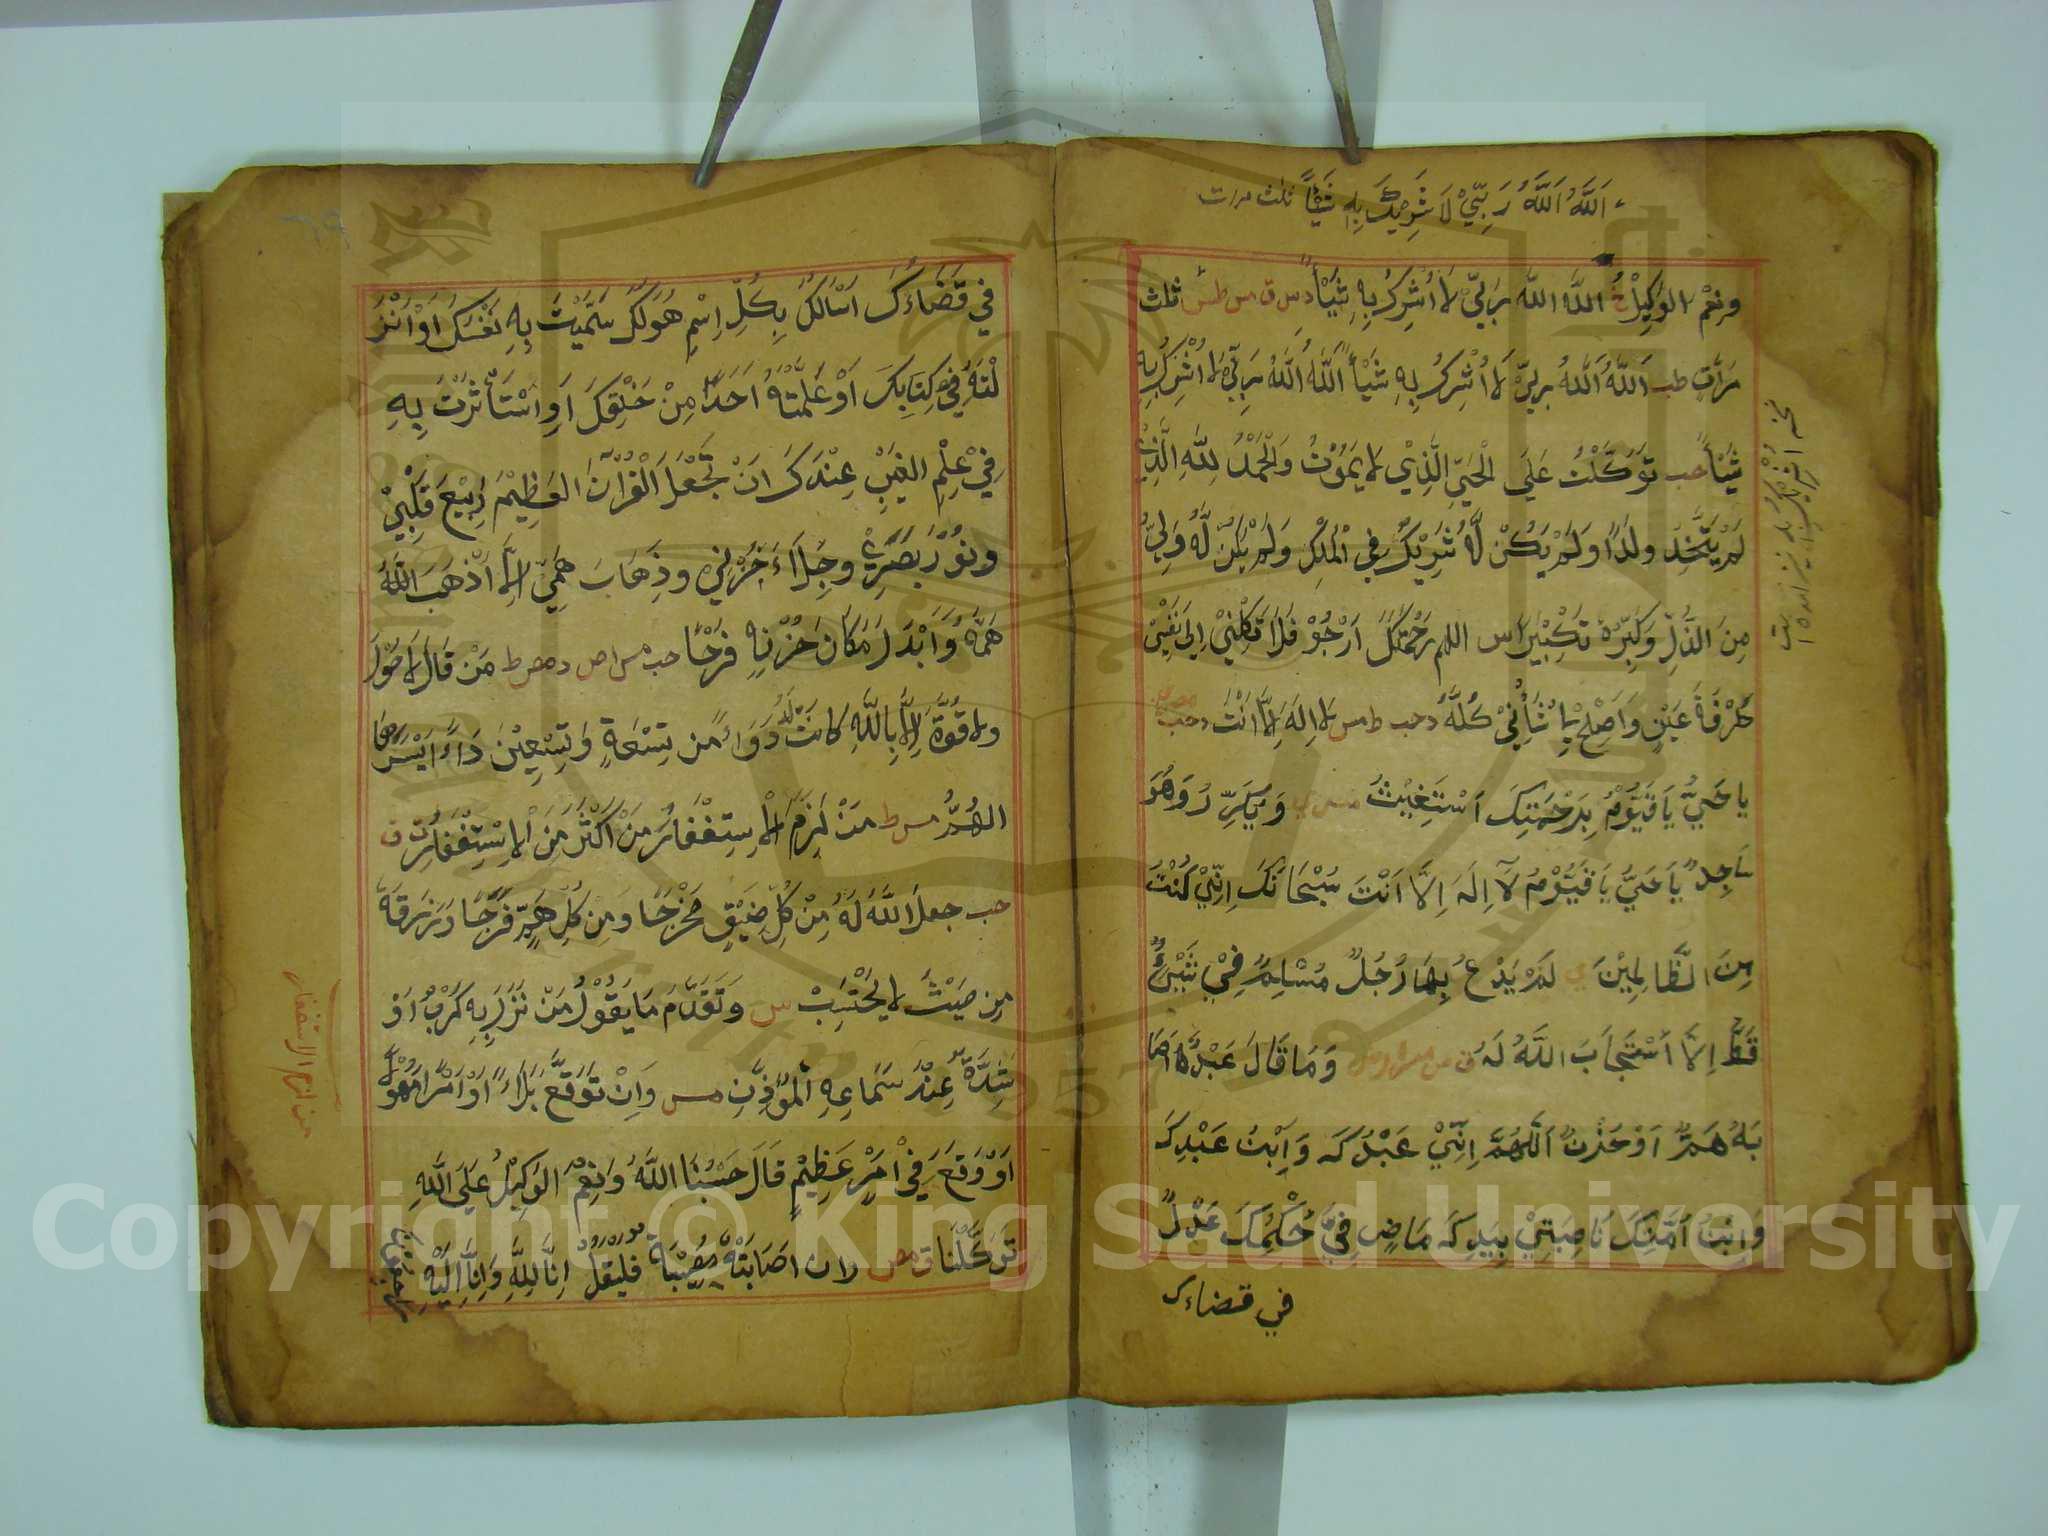 اَللَّهُ اَللَّهُ رَبِّيْ لَا شَرِيْكَ بِهِ شَيْأً ثلث مرات
ونِعْمَ الوَكِيْلُ خ اللَّه اللَّه رَبِّيْ لَا اُشْرِكُ بِهِ شَيْأً د س ق مص طس ثلث
مَرَّاتٍ طب اَللَّهُ اَللَّهُ رَبِّيْ لَا اُشْرِكُ بِهِ شَيْأً اَللَّهُ اَللَّهُ رَبِّيْ لَا اُشْرِكُ بِهِ
شَيْأً حب تَوَكَّلْتُ عَلَى الْحَيِّ الَّذِيْ لَا يَمُوْتُ وَالْحَمْدُ لِلَّهِ الَّذِيْ
لَمْ يَتَّخِذْ وَلَدًا وَلَمْ يَكُنْ لَّهُ شَرِيْكٌ فِي الْمُلْكِ وَلَمْ يَكُنْ لَّهُ وَلِيٌّ
مِنَ الذُّلِّ وَكَبِّرْهُ تَكْبِيْرًا مس اللهم رَحْمَتَكَ اَرْجُوْ فَلَا تَكِلْنِيْ اِلَى نَفْسِيْ
طَرْفَةَ عَيْنٍ وَاَصْلِحْ لِيْ شَأْنِيْ كُلَّهُ د حب ط مص لَا اِلَهَ اِلَّا اَنْتَ د حب مص
يَا حَيُّ يَا قَيُّوْمُ بِرَحْمَتِكَ اَسْتَغِيْثُ مس ي وَيُكَرِّرُ وَهُوَ
سَاجِدٌ يَا حَيُّ يَا قَيُّوْمُ لَا اِلَهَ اِلَّا اَنْتَ سُبْحَانَكَ اِنِّيْ كُنْتُ
مِنَ الظَّالِمِيْنَ ي لَمْ يَدْعُ بِهَا رَجُلٌ مُسْلِمٌ فِيْ شَيْءٍ
قَطُّ اِلَّا اسْتَجَابَ اللَّهُ لَهُ وَمَا قَالَ عَبْدٌ اَصَا
بَهُ هَمٌّ اَوْ حَزَنٌ اَللَّهُمَّ اِنِّيْ عَبْدُكَ وَابْنُ عَبْدِكَ
وَابْنُ اَمَتِكَ نَاصِيَتِيْ بِيَدِكَ مَاضٍ فِيَّ حُكْمُكَ عَدْلٌ
في قضاءك
فِي قَضَاءُكَ اَسْأَلُكَ بِكُلِّ اِسْمٍ هُوَ لَكَ سَمَّيْتَ بِهِ نَفْسَكَ اَوْ اَنْزَ
لْتَهُ فِيْ كِتَابِكَ اَوْ عَلَّمْتَهُ اَحَدًا مِنْ خَلْقِكَ اَوِ اسْتَأْثَرْتَ بِهِ
فِيْ عِلْمِ الْغَيْبِ عِنْدَكَ اَنْ تَجْعَلَ الْقُرْآنَ الْعَظِيْمَ رَبِيْعَ قَلْبِيْ
وَنُوْرَ بَصَرِيْ وَجِلَاءَ حُزْنِيْ وَذِهَابَ هَمِّيْ اِلَّا اَذْهَبَ اللَّهُ
هَمَّهُ وَاَبْدَلَ مَكَانَ حُزْنِهِ فَرَحًا حب مس ا ص د مص ط مَنْ قَالَ لَا حَوْلَ
وَلَا قُوَّةَ اِلَّا بِاللَّهِ كَانَتْ لَهُ دَوَاءً مِنْ تِسْعَةٍ وَتِسْعِيْنَ دَاءً اَيْسَرُهَا
الهَمُّ مس ط مَنْ لَزِمَ الْاِسْتِغْفَارَ مَنْ اَكْثَرَ مِنَ الْاِسْتِغْفَارِ د ق
حب جَعَلَ اللَّهُ لَهُ مِنْ كُلِّ ضِيْقٍ مَخْرَجًا وَمِن كُلِّ هَمٍّ فَرَجًا وَرَزَقَهُ
مِن حَيْثُ لَا يَحْتَسِبْ س وَتَقَدَّمَ مَا يَقُوْلُ مَنْ نَزَلَ بِهِ كَرْبٌ اَوْ
شِدَّةٌ عِنْدَ سَمَاعِهِ الْمُؤَذِّنَ مس وَاِنْ تَوَقَّعَ بَلَاءً اَوْ اَمْرًا مَهُوْلًا
اَوْ وَقَعَ فِيْ اَمْرٍ عَظِيْمٍ قَالَ حَسْبُنَا اللَّهُ وَنِعْمَ الْوَكِيْلُ عَلَى اللَّهِ
تَوَكَّلْنَا ت مص وان اَصَابَتْهُ مُصِيْبَةٌ فَلْيَقُلْ اِنَّا لِلَّهِ وَاِنَّا اِلَيْهِ راجعون
من لزم الاستغفار
Copyright © King Saud University